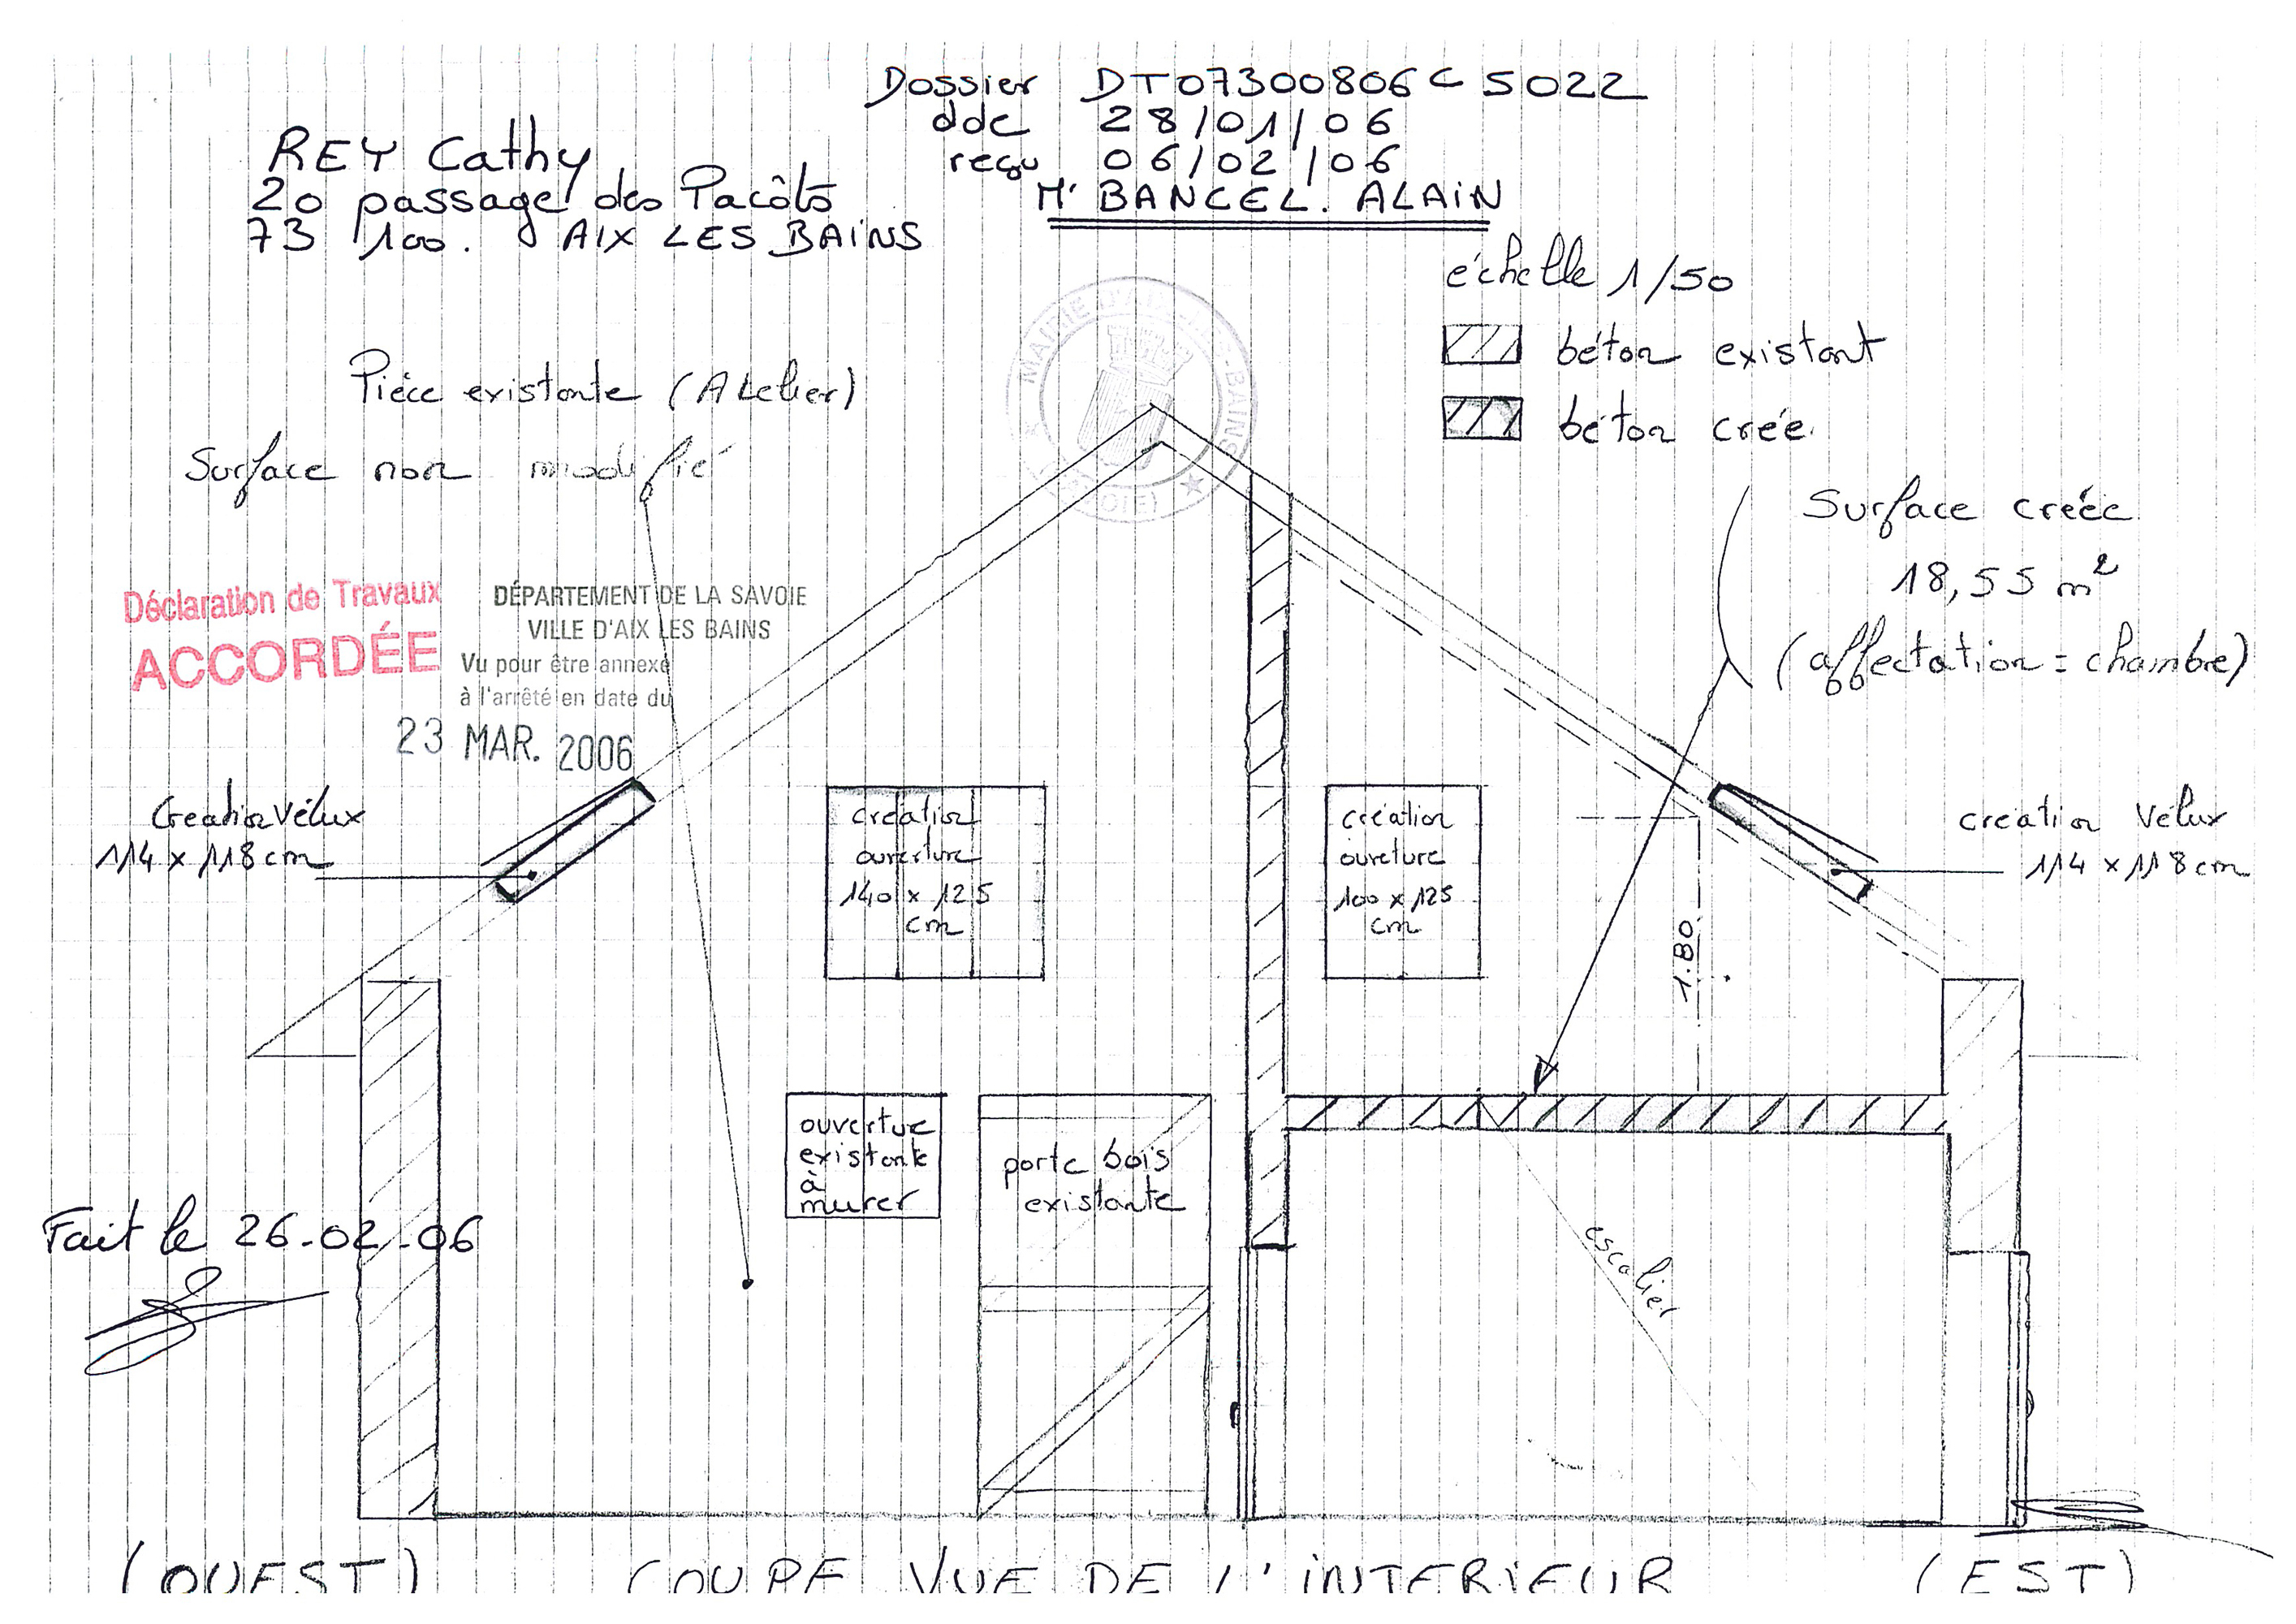 Dossier DT07300806C5022
ddc 28/01/06
reçu 06/02/06
Mr BANCEL. ALAIN
REY Cathy
20 passage des Pacôts
73 100. AIX LES BAINS
échelle 1/50
béton existant
béton crée.
MAIRIE D'AIX-LES-BAINS
(SAVOIE)
Pièce existante (Atelier)
Surface non modifié
Surface créée
18,55 m²
(affectation = chambre)
Déclaration de Travaux
ACCORDÉE
DÉPARTEMENT DE LA SAVOIE
VILLE D'AIX LES BAINS
Vu pour être annexé
à l'arrêté en date du
23 MAR. 2006
Creation Vélux
114 x 118 cm
création
ouverture
140 x 125
cm
création
ouverture
100 x 125
cm
1.80
création Vélux
114 x 118 cm
ouverture
existante
à
murer
porte bois
existante
escalier
Fait le 26-02-06
(OUEST) COUPE VUE DE L'INTERIEUR (EST)